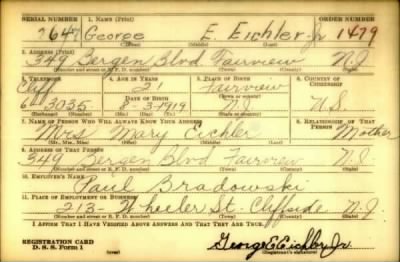 SERIAL NUMBER 1. NAME (Print) ORDER NUMBER
2647 George E. Eichler Jr 1479
2. ADDRESS (Print)
349 Bergen Blvd Fairview N.J.
(Number and street or R. F. D. number) (Town) (County) (State)
3. TELEPHONE 4. AGE IN YEARS 5. PLACE OF BIRTH 6. COUNTRY OF CITIZENSHIP
Cliff 21 Fairview
DATE OF BIRTH (Town or county)
6-3035 8-3-1919 N.J. U.S.
(Exchange) (Number) (Mo.) (Day) (Yr.) (State or country)
7. NAME OF PERSON WHO WILL ALWAYS KNOW YOUR ADDRESS 8. RELATIONSHIP OF THAT PERSON
Mrs Mary Eichler Mother
(Mr., Mrs., Miss) (First) (Middle) (Last)
9. ADDRESS OF THAT PERSON
349 Bergen Blvd Fairview N.J.
(Number and street or R. F. D. number) (Town) (County) (State)
10. EMPLOYER'S NAME
Paul Bradowski
11. PLACE OF EMPLOYMENT OR BUSINESS
213- Wheeler St. Cliffside N.J.
(Number and street or R. F. D. number) (Town) (County) (State)
I AFFIRM THAT I HAVE VERIFIED ABOVE ANSWERS AND THAT THEY ARE TRUE.
REGISTRATION CARD
D. S. S. FORM 1 George E Eichler Jr.
(Registrant's signature)